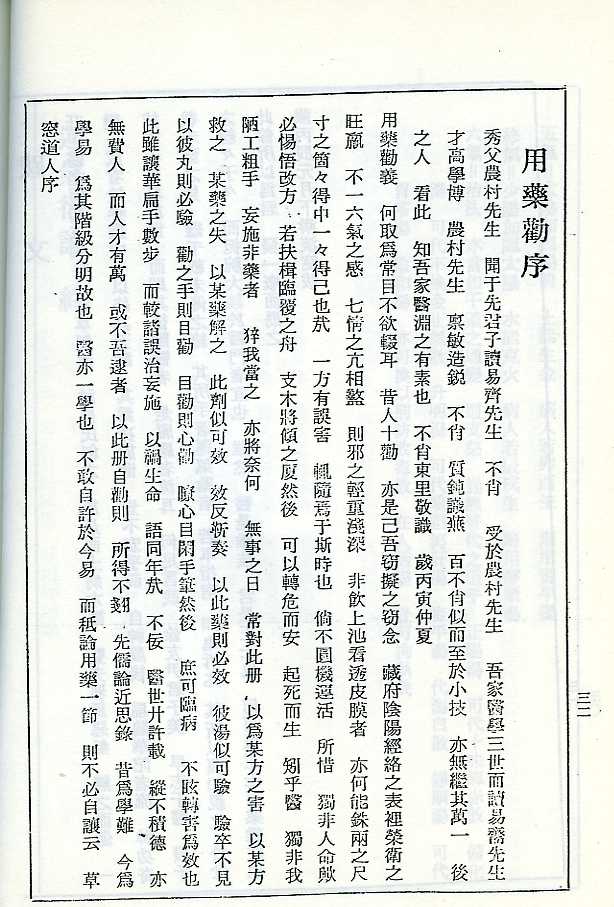 用藥勸序
秀父農村先生 聞于先君子讀易齊先生 不肖 受於農村先生 吾家醫學三世而讀易齋先生
才高學博 農村先生 禀敏造鋭 不肖 質鈍識蕪 百不肖似而至於小技 亦無繼其萬一 後
之人 看此 知吾家醫淵之有素也 不肖東里敬識 歲丙寅仲夏
用藥勸義 何取爲常目不欲輟耳 昔人十勸 亦是己吾窃擬之窃念 藏府陰陽經絡之表裡榮衛之
旺羸 不一六氣之感 七情之亢相盪 則邪之輕重淺深 非飲上池看透皮膜者 亦何能銖兩之尺
寸之箇々得中一々得己也㢤 一方有誤害 輒隨焉于斯時也 倘不圓機運活 所惜 獨非人命歟
必惕悟改方 若扶楫臨覆之舟 支木將傾之厦然後 可以轉危而安 起死而生 矧乎醫 獨非我
陋工粗手 妄施非藥者 猝我當之 亦將奈何 無事之日 常對此册 以爲某方之害 以某方
救之 某藥之失 以某藥解之 此劑似可效 效反漸奏 以此藥則必效 彼湯似可驗 驗卒不見
以彼丸則必驗 勸之手則目勸 目勸則心勸 瞭心目閑手筆然後 庶可臨病 不眩轉害爲效也
此雖讓華扁手數步 而較諸誤治妄施 以禍生命 語同年㢤 不佞 醫世廾許載 縱不積德 亦
無費人 而人才有萬 或不吾逮者 以此册自勸則 所得不尠 先儒論近思錄 昔爲學難 今爲
學易 爲其階級分明故也 醫亦一學也 不敢自許於今易 而秪論用藥一節 則不必自讓云 草
窓道人序
三二